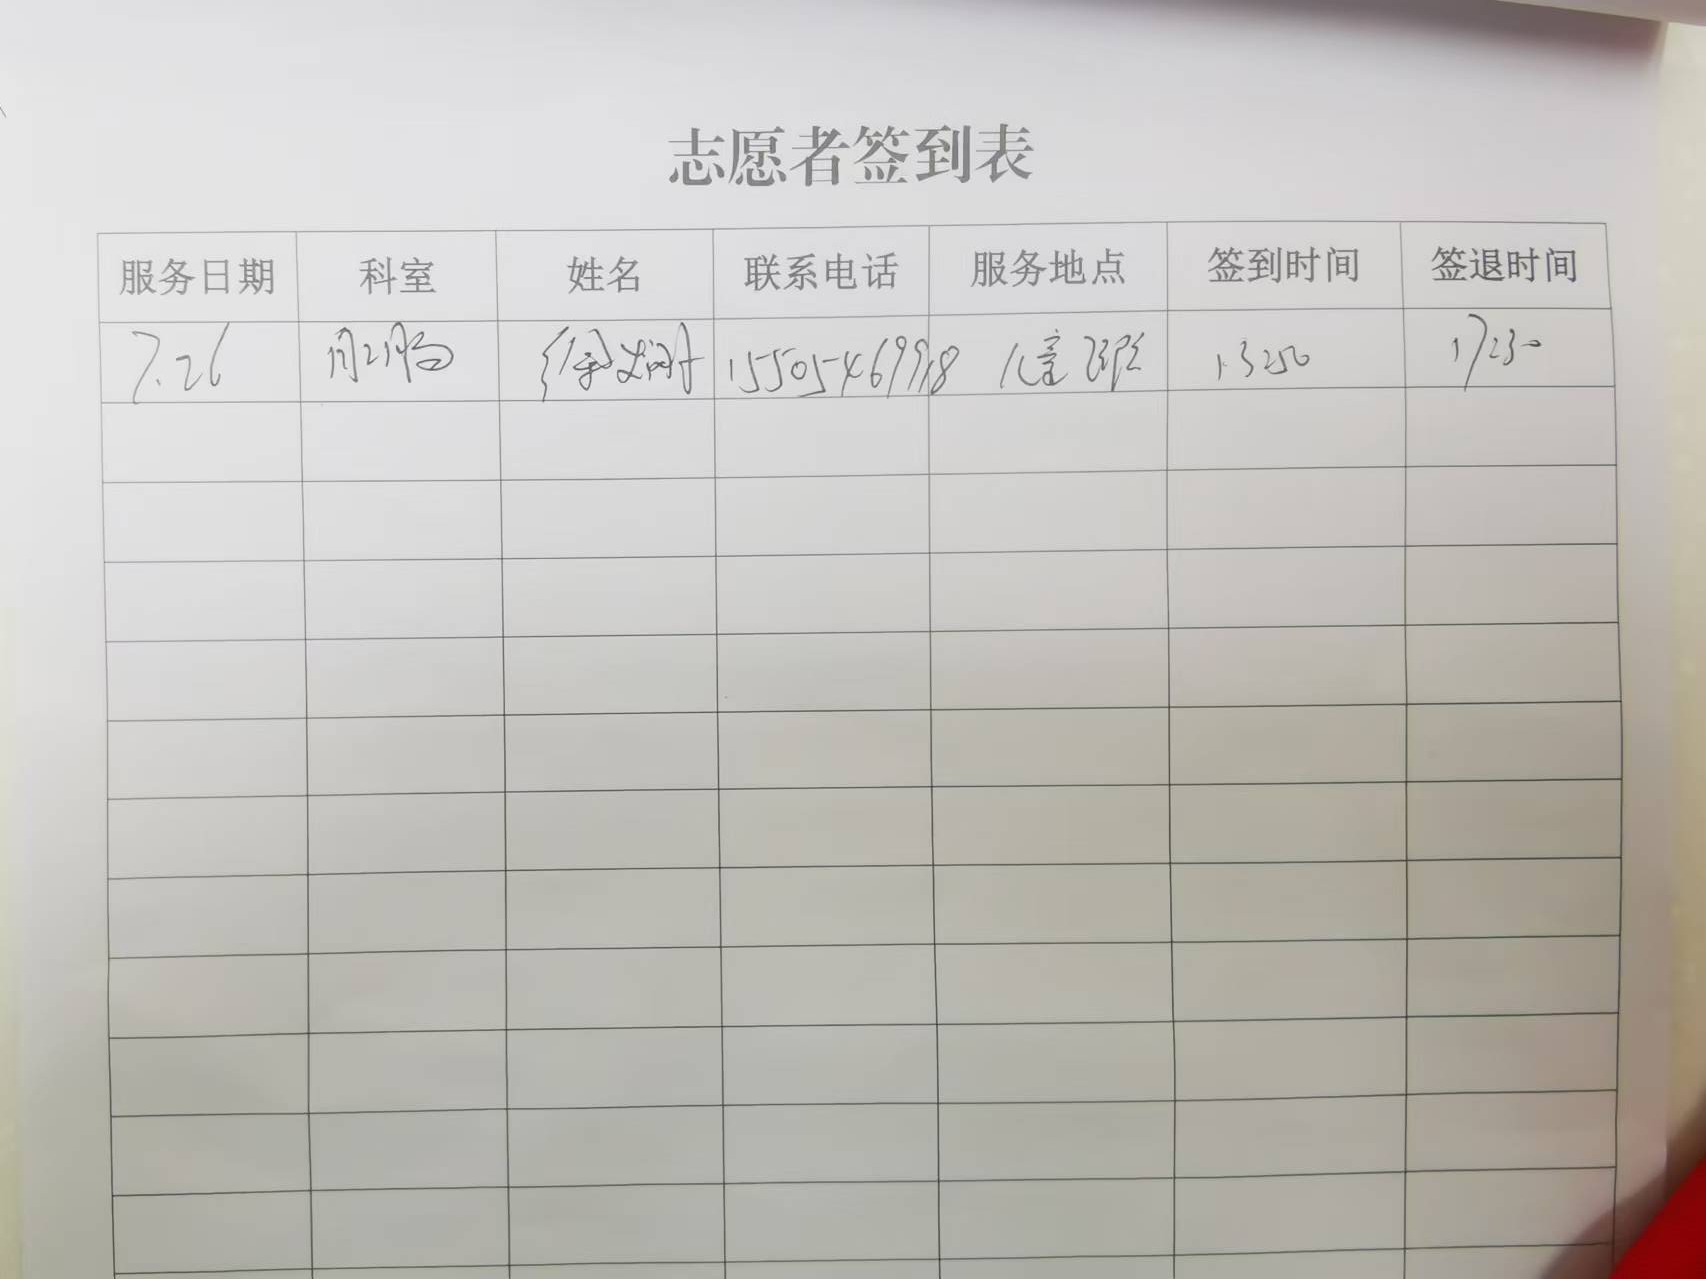 志愿者签到表
服务日期 科室 姓名 联系电话 服务地点 签到时间 签退时间
7.26 15505469998 儿童 13:50 17:30